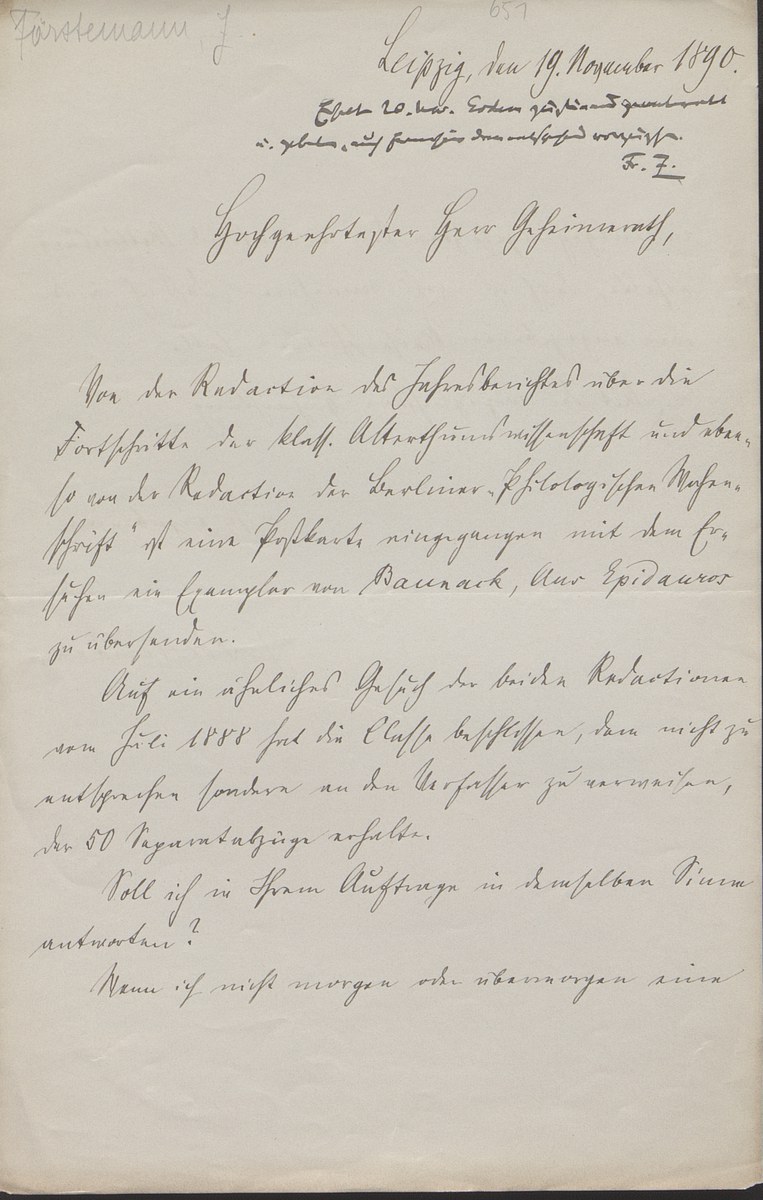 Förstemann, J.
651
Leipzig, den 19. November 1890.
20. Nov.
u.
Fr. Z.
Hochgeehrtester Herr Geheimerath,
Von der Redaction des Jahresberichtes über die
Fortschritte der klass. Alterthumswissenschaft und eben-
so von der Redaction der Berliner „Philologischen Wochen-
schrift“ ist eine Postkarte eingegangen mit dem Er-
suchen ein Exemplar von Baunack, Aus Epidauros
zu übersenden.
Auf ein ähnliches Gesuch der beiden Redactionen
vom Juli 1888 hat die Classe beschlossen, dem nicht zu
entsprechen sondern an den Verfasser zu verweisen,
der 50 Separatabzüge erhalte.
Soll ich in Ihrem Auftrage in demselben Sinne
antworten?
Wenn ich nicht morgen oder übermorgen eine